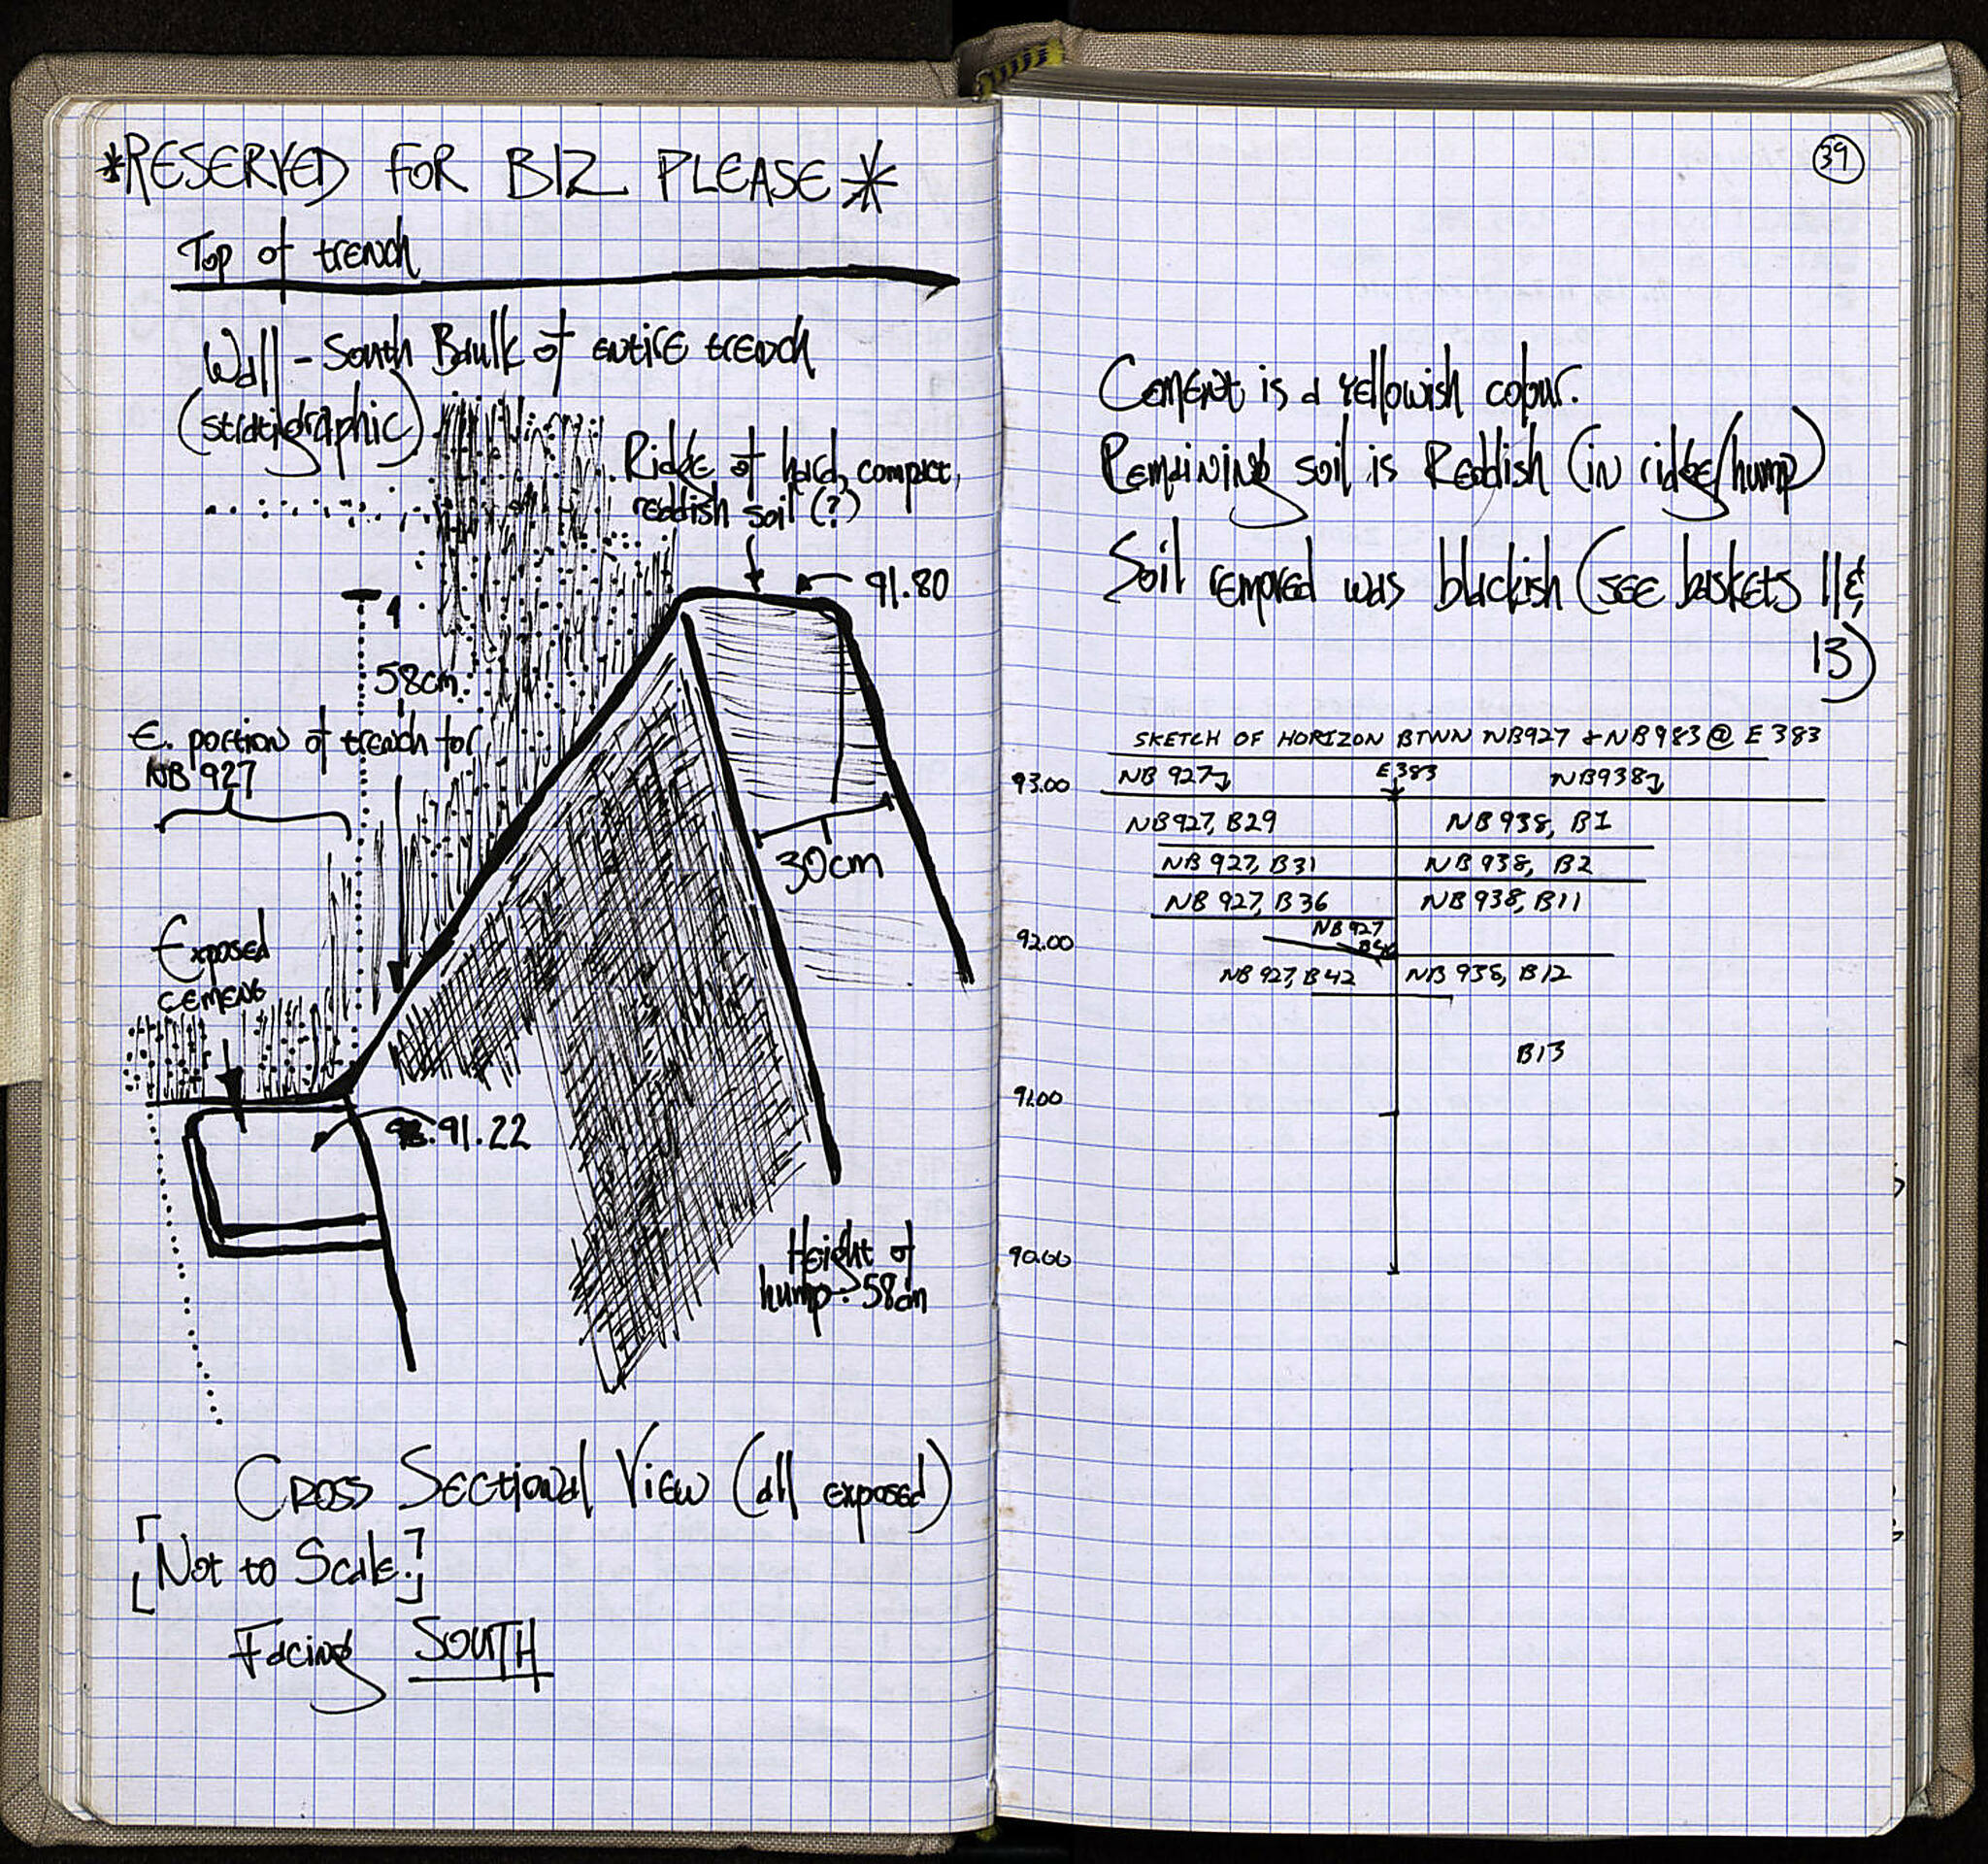 *RESERVED FOR B12 PLEASE*
Top of trench
Wall - South Baulk of entire trench
(stratigraphic)
Ridge of hard, compact,
reddish soil (?)
91.80
58cm
E. portion of trench for
NB 927
30cm
Exposed
cement
91.22
Height of
hump: 58cm
Cross Sectional View (all exposed)
[Not to Scale.]
Facing SOUTH
39
Cement is a yellowish colour.
Remaining soil is Reddish (in ridge/hump)
Soil removed was blackish (see baskets 11 &
13)
SKETCH OF HORIZON BTWN NB927 & NB983 @ E 383
93.00 NB 927 E383 NB938
NB927, B29 NB 938, B1
NB 927, B31 NB 938, B2
NB 927, B36 NB 938, B11
92.00 NB 927
NB 927, B42 NB 938, B12
B13
91.00
90.00